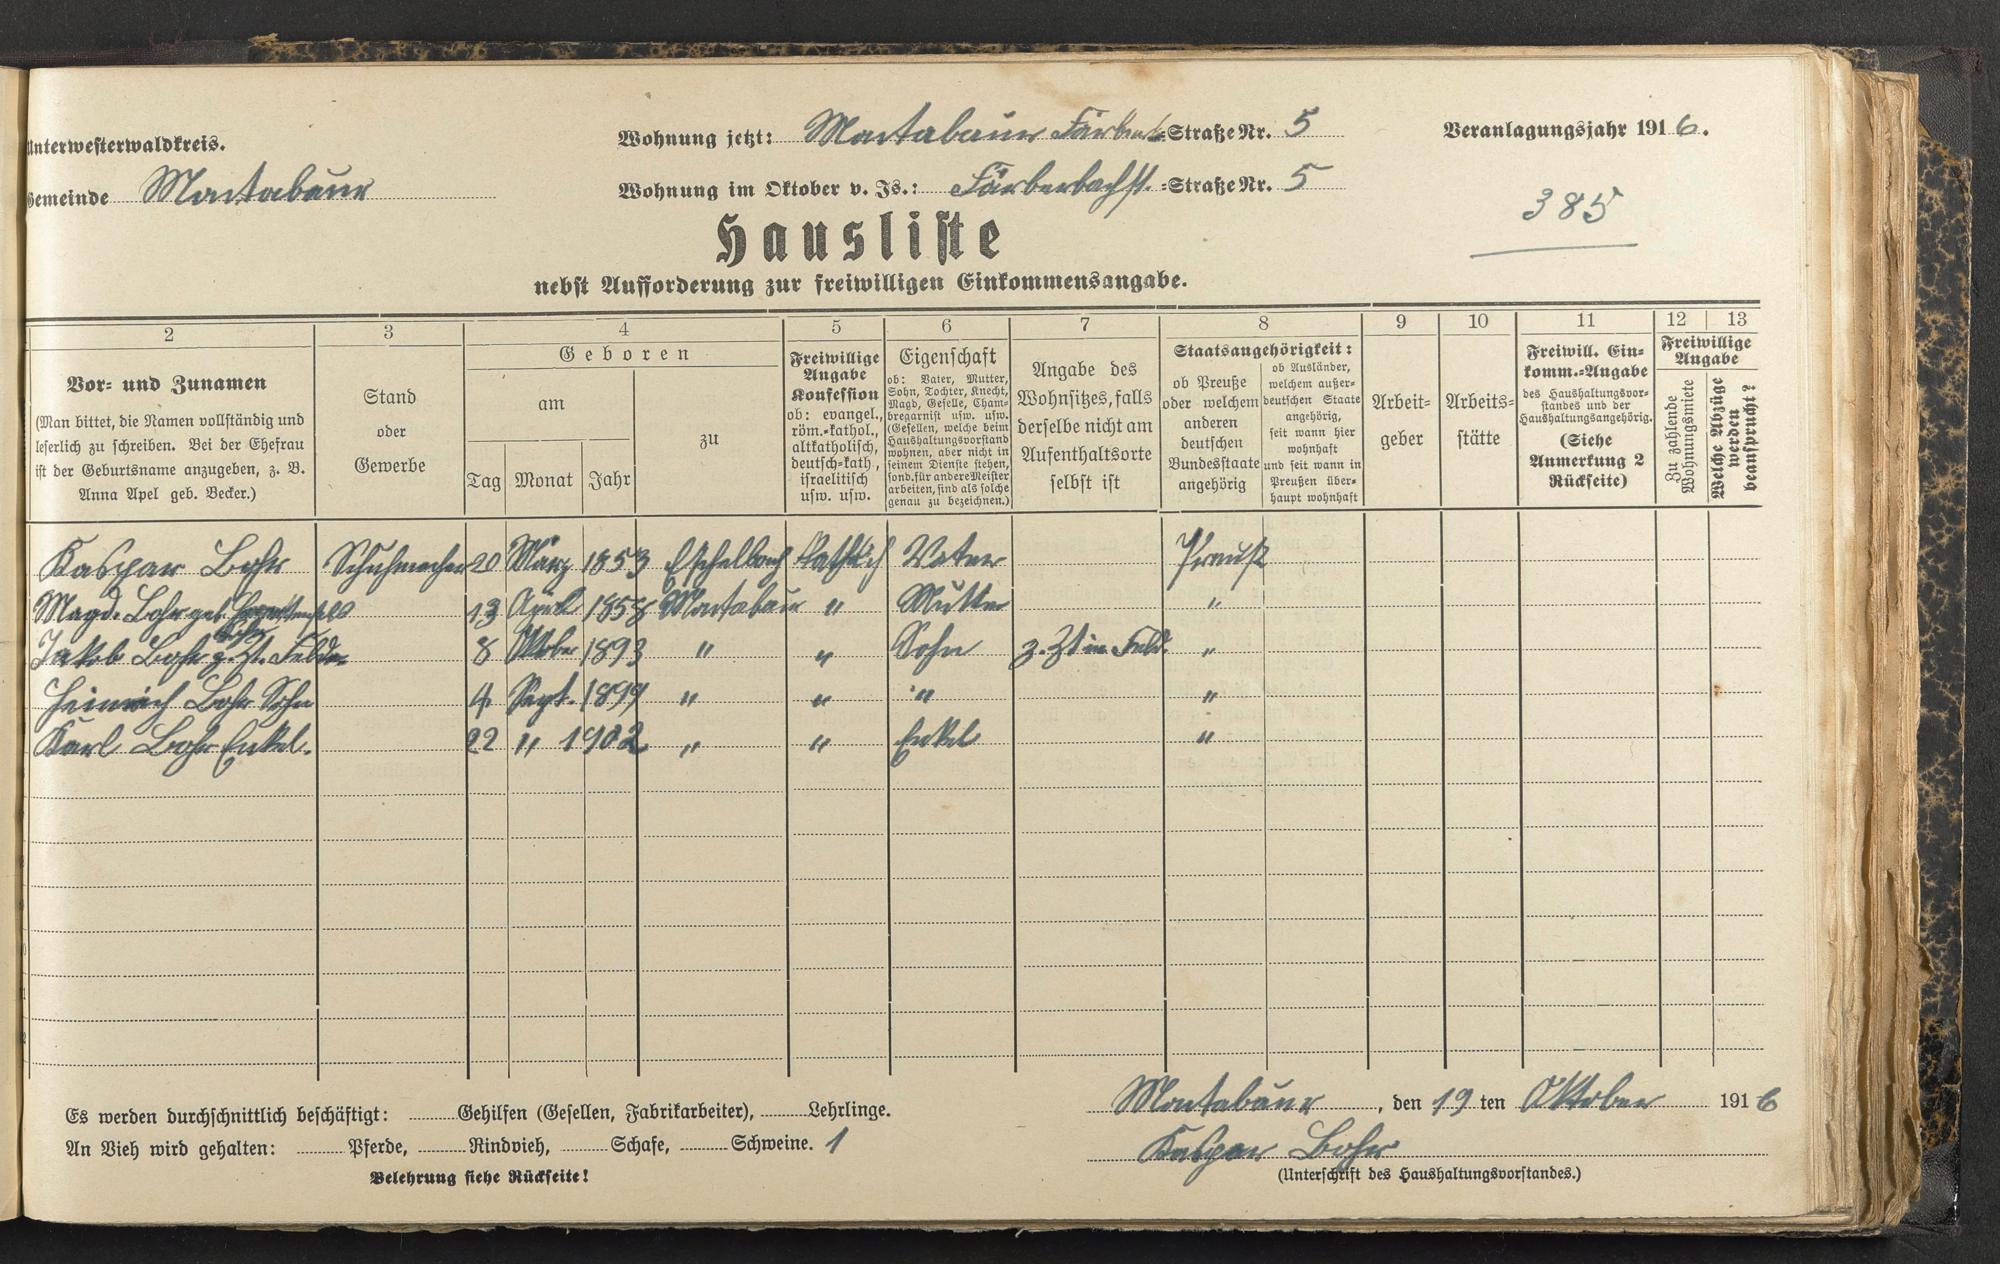 Unterwesterwaldkreis.
Gemeinde Montabaur
Wohnung jetzt: Montabaur Färberb =Straße Nr. 5
Wohnung im Oktober v. Js.: Färberbachst. =Straße Nr. 5
Veranlagungsjahr 1916.
385
Hausliste
nebst Aufforderung zur freiwilligen Einkommensangabe.
2 3 4 5 6 7 8 9 10 11 12 13
Vor- und Zunamen
(Man bittet, die Namen vollständig und
leserlich zu schreiben. Bei der Ehefrau
ist der Geburtsname anzugeben, z. B.
Anna Apel geb. Becker.)
Stand
oder
Gewerbe
Geboren
am
Tag Monat Jahr
zu
Freiwillige
Angabe
Konfession
ob: evangel.,
röm.-kathol.,
altkatholisch,
deutsch-kath.,
israelitisch
usw. usw.
Eigenschaft
ob: Vater, Mutter,
Sohn, Tochter, Knecht,
Magd, Geselle, Cham-
bregarnist usw. usw.
(Gesellen, welche beim
Haushaltungsvorstand
wohnen, aber nicht in
seinem Dienste stehen,
sond. für andere Meister
arbeiten, sind als solche
genau zu bezeichnen.)
Angabe des
Wohnsitzes, falls
derselbe nicht am
Aufenthaltsorte
selbst ist
Staatsangehörigkeit:
ob Preuße
oder welchem
anderen
deutschen
Bundesstaate
angehörig
ob Ausländer,
welchem außer-
deutschen Staate
angehörig,
seit wann hier
wohnhaft
und seit wann in
Preußen über-
haupt wohnhaft
Arbeit-
geber
Arbeits-
stätte
Freiwill. Ein-
komm.-Angabe
des Haushaltungsvor-
standes und der
Haushaltungsangehörig.
(Siehe
Anmerkung 2
Rückseite)
Freiwillige
Angabe
Zu zahlende
Wohnungsmiete
Welche Abzüge
werden
beansprucht?
Kaspar Bohr Schuhmacher 20 März 1853 Eschelbach kathlich Vater Preuße
Magd. Bohr geb. 13 April 1858 Montabaur " Mutter "
Sohn
Jakob Bohr z. Zt. Felde 8 Oktober 1893 " " Sohn z. Zt im Feld. "
Heinrich Bohr Sohn 4 Sept. 1899 " " " "
Karl Bohr Enkel. 22 " 1902 " " Enkel "
Es werden durchschnittlich beschäftigt: Gehilfen (Gesellen, Fabrikarbeiter), Lehrlinge.
An Vieh wird gehalten: Pferde, Rindvieh, Schafe, Schweine. 1
Belehrung siehe Rückseite!
Montabaur, den 19 ten Oktober 1916
Kaspar Bohr
(Unterschrift des Haushaltungsvorstandes.)